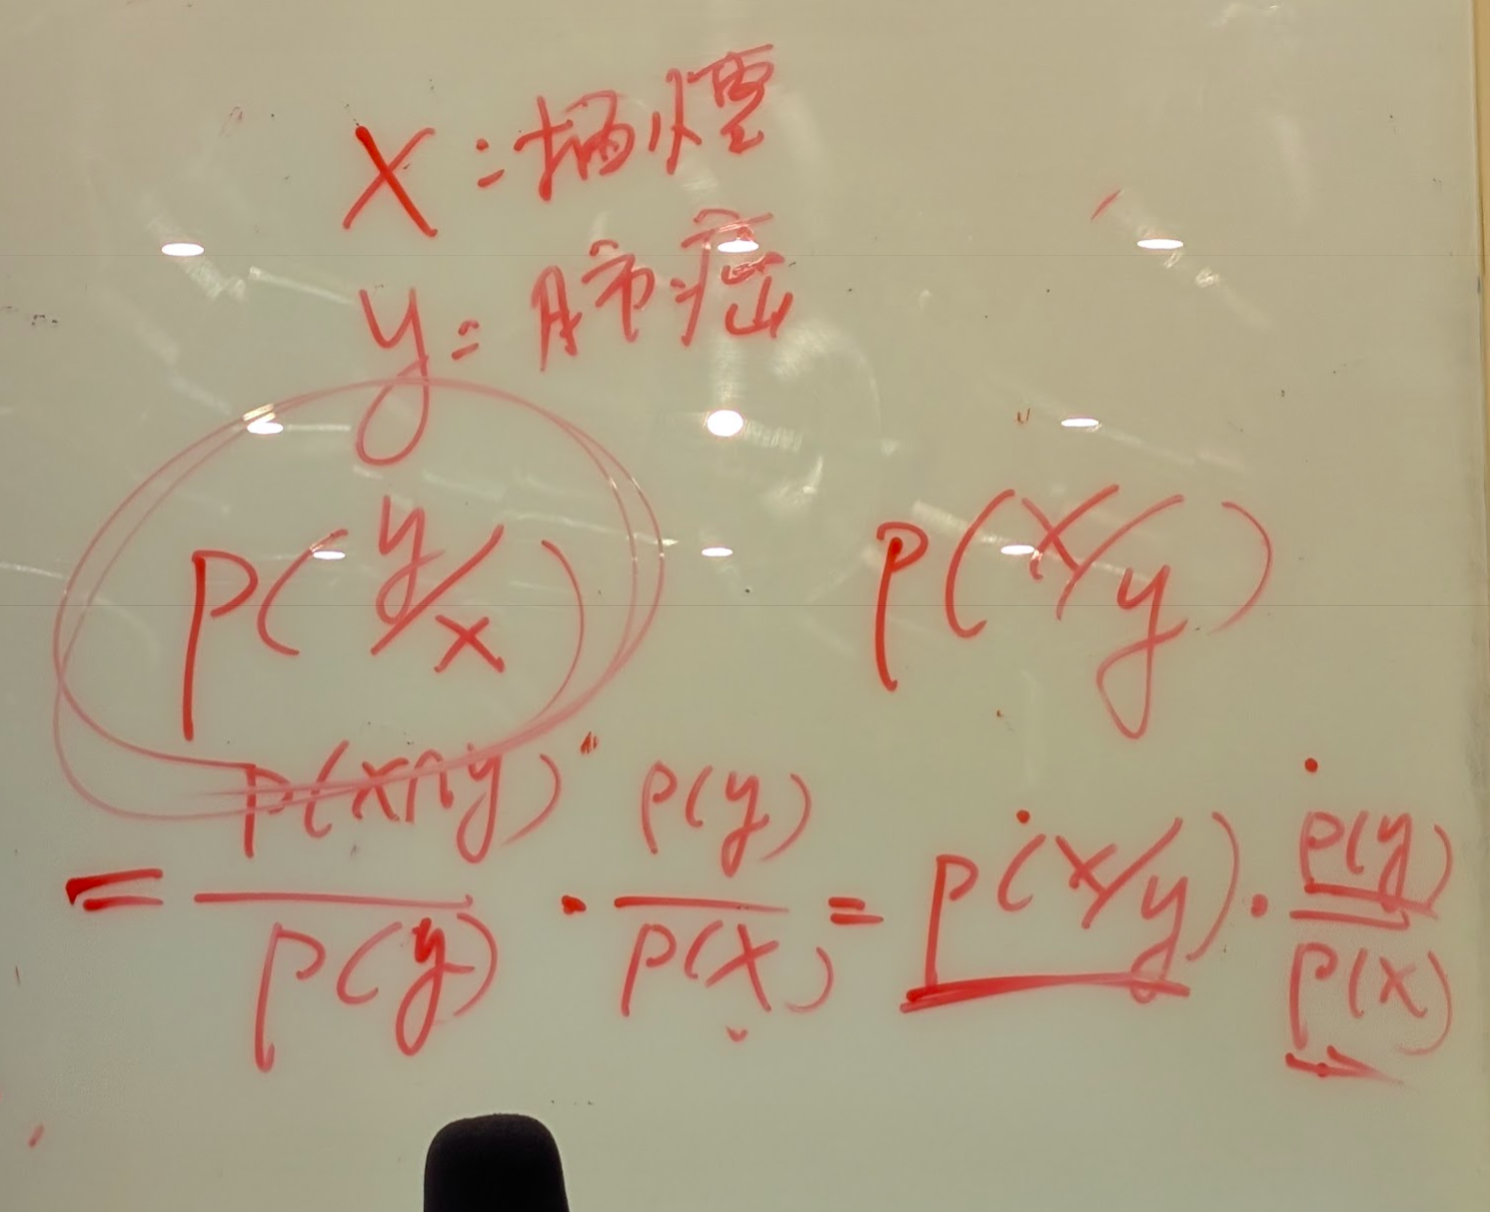 X：抽煙
y：肺癌
P(y/x) P(x/y)
= P(x∩y)/P(y) · P(y)/P(x) = P(x/y) · P(y)/P(x)